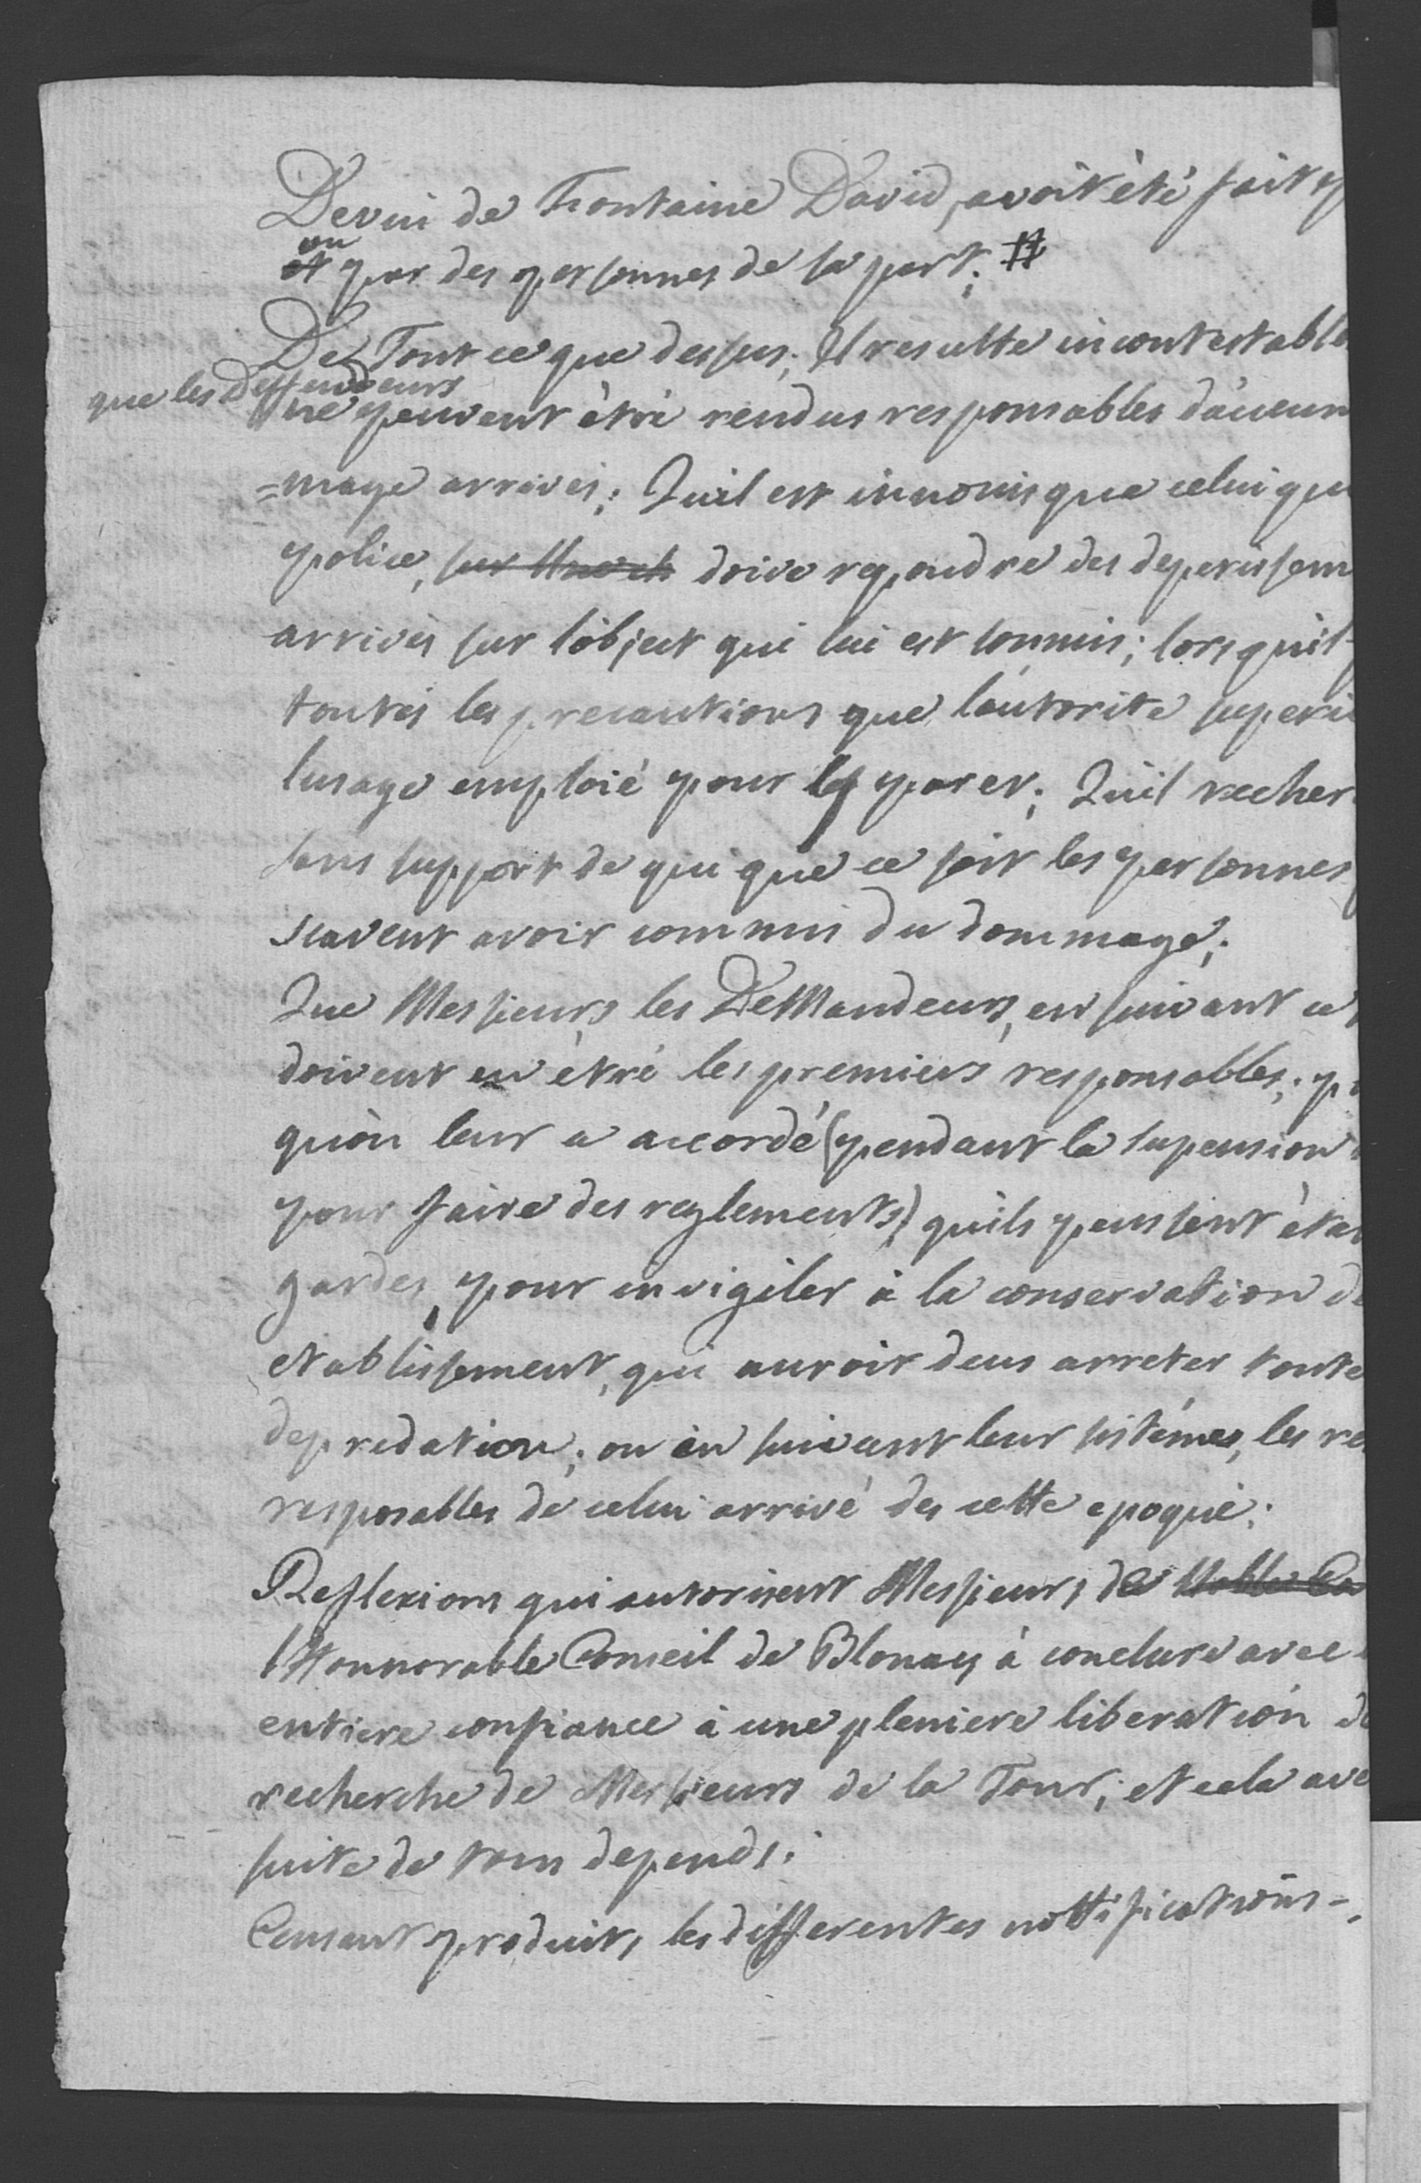 Devin de Fontaine David, avoit été fait
ou
et par des personnes de sa part; #
De Tout ce que dessus; Il resulte incontestable
que les Deffendeurs
ne peuvent être rendus responsables d'aucun
=mage arrivés; Quil est innouis que celui qu
police, doive repondre des deperissem
arrivés sur l'object qui lui est soumis; lorsquil
toutes les precautions que l'autorite superi
lusage emploié pour les parer; Quil recher
sans support de qui que ce soit les personnes
scavent avoir commis du dommage;
Que Messieurs les DeMandeurs, en suivant ce
doivent en être les premiers responsables; p
qu'on leur a accordé (pendant la supension
pour faire des reglements) quils pensent éta
gardes, pour invigiler à la conservation de
etablissement, qui auroit deus arreter toute
depredation; ou en suivant leur sistémes, les re
resposables de celui arrivé des cette epoque;
Reflexions qui autorisent Messieurs de Noble Con
l'Honnorable Conseil de Blonay à conclure avec
entiere confiance à une pleniere liberation de
recherche de Messieurs de la Tour; et cela ave
suite de tous depends;
Censant produits, les differentes nottifications-.